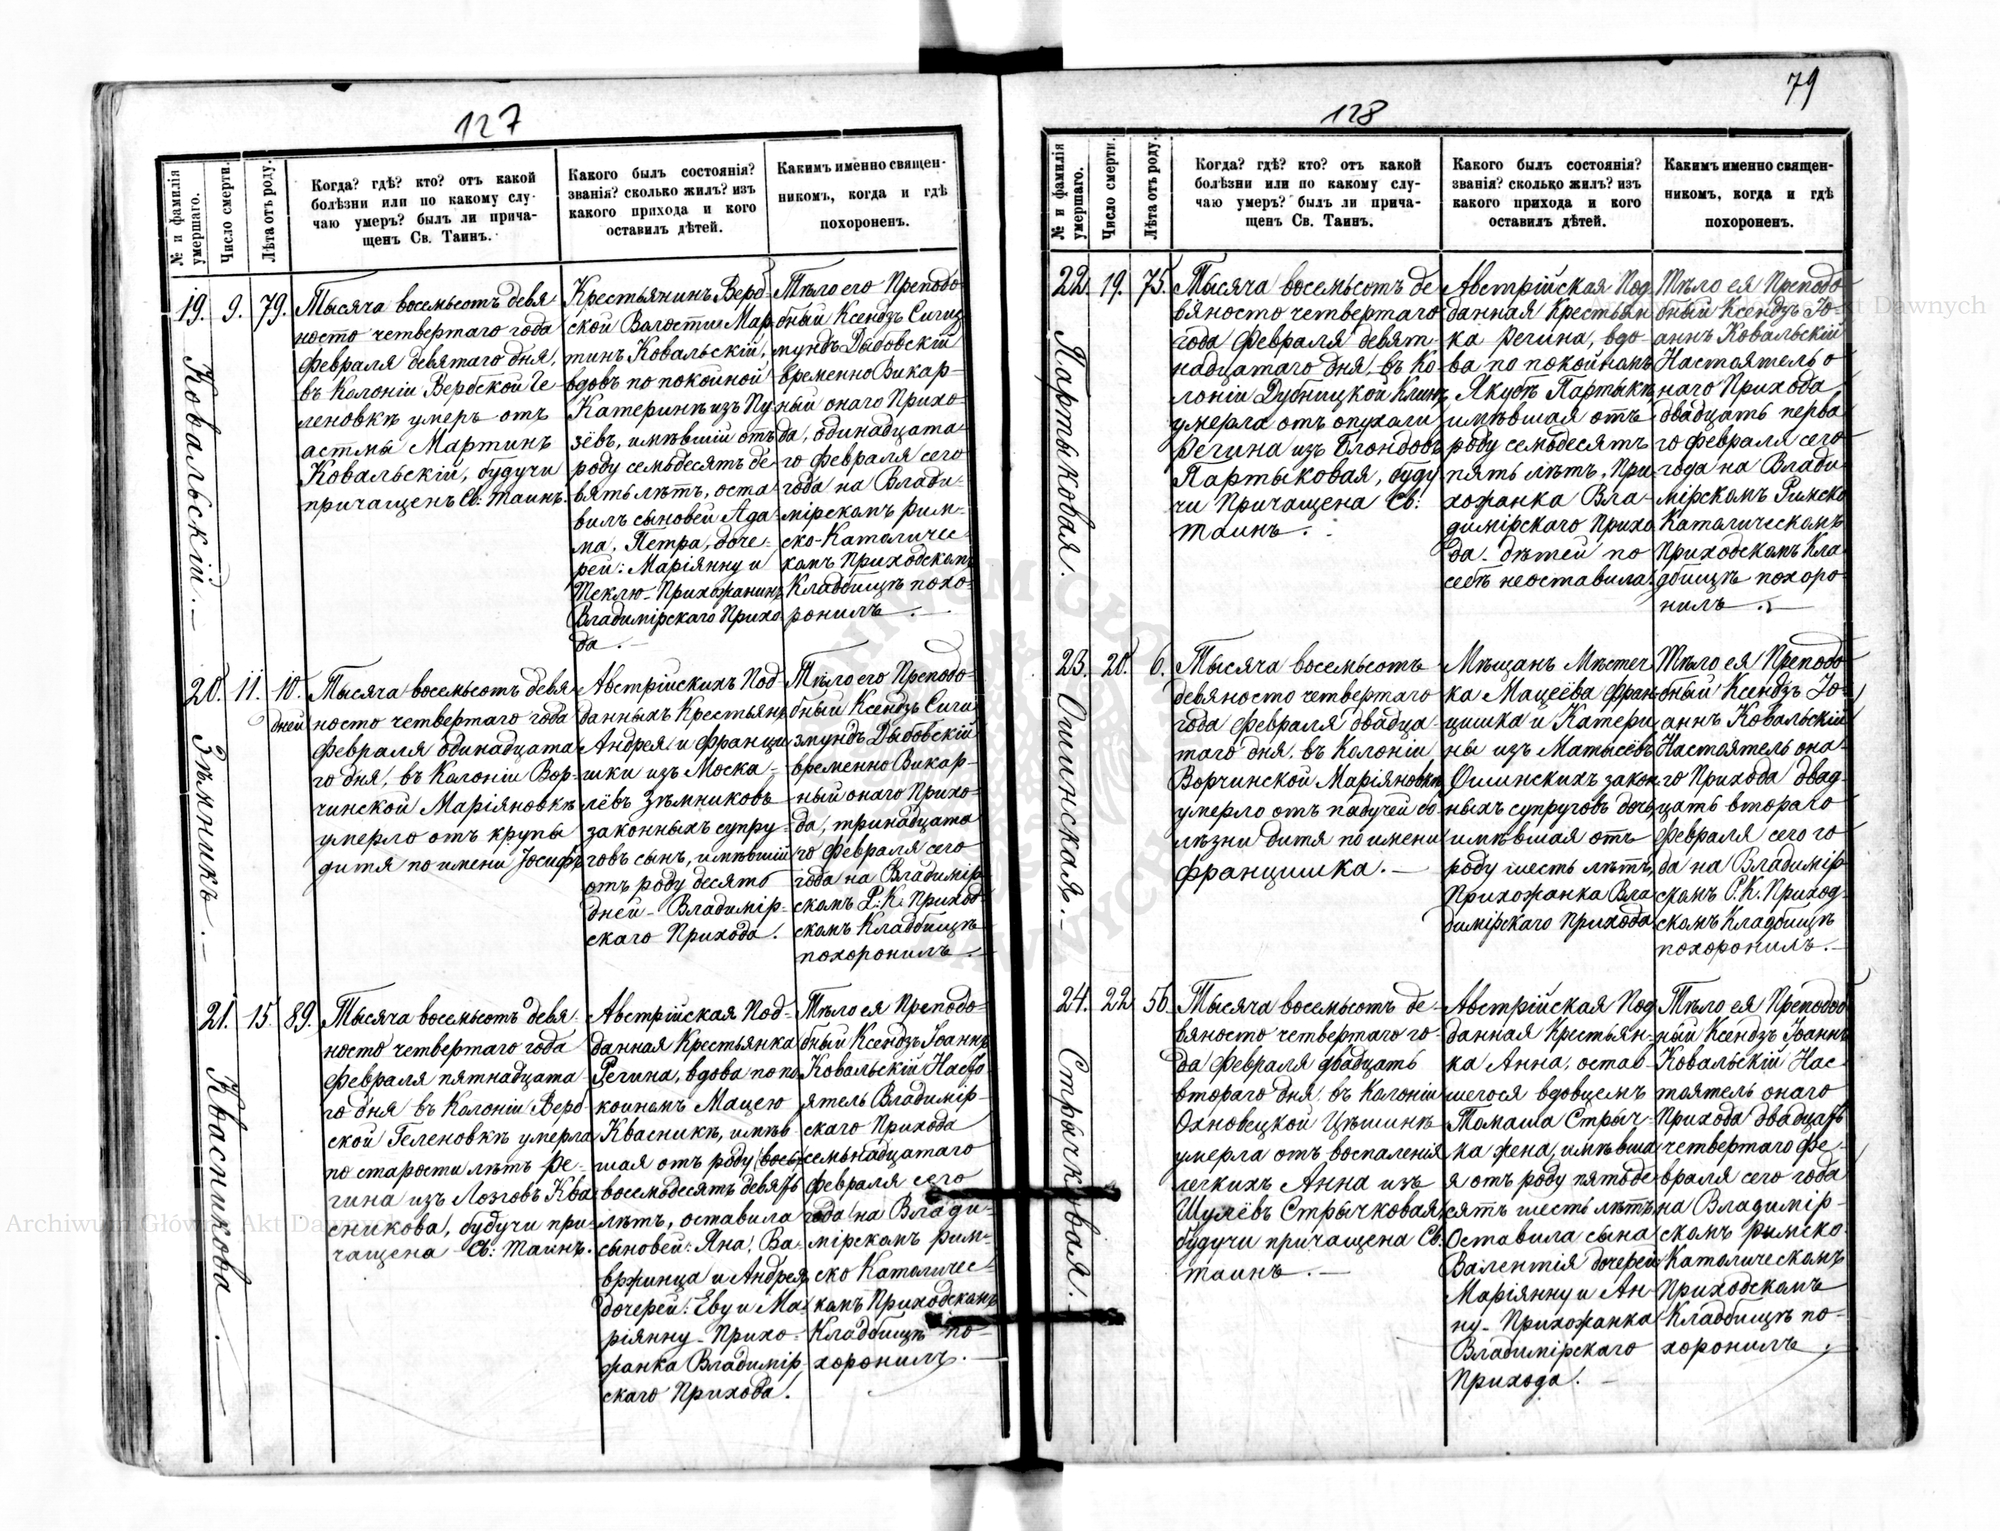 79
127
№ и фамилія умершаго.
Число смерти.
Лѣта отъ роду.
Когда? гдѣ? кто? отъ какой
болѣзни или по какому слу-
чаю умеръ? былъ ли прича-
щенъ Св. Таинъ.
Какого былъ состоянія?
званія? сколько жилъ? изъ
какого прихода и кого
оставилъ дѣтей.
Какимъ именно священ-
никомъ, когда и гдѣ
похороненъ.
19.
Ковальскій.
9.
79.
Тысяча восемьсотъ девя
носто четвертаго года
февраля девятаго дня,
въ Колоніи Вербской Ге-
леновкѣ умеръ отъ
астмы Мартинъ
Ковальскій, будучи
причащенъ Св: таинъ.
Крестьянинъ Верб-
ской Волости Мар
тинъ Ковальскій,
вдовъ по покойной
Катеринѣ изъ Пу
зёвъ, имѣвшій отъ
роду семьдесятъ де
вять лѣтъ, оста
вилъ сыновей Ада
ма, Петра, доче-
рей: Маріянну и
Теклю - Прихожанинъ
Владимірскаго Прихо
да. -
Тѣло его Преподо
бный Ксендзъ Сигиз
мундъ Дыбовскій
временно Викар-
ный онаго Прихо-
да, одинадцата
го февраля сего
года на Влади-
мірскомъ Рим-
ско-Католичес-
комъ Приходскомъ
Кладбищѣ похо-
ронилъ. -
20.
Зѣмникъ. -
11.
10.
дней
Тысяча восемьсотъ девя
носто четвертаго года
февраля одинадцата
го дня, въ Колоніи Вор-
чинской Маріяновкѣ
умерло отъ крупы
дитя по имени Іосифъ
Австрійскихъ Под-
данныхъ Крестьянъ
Андрея и Франци
шки изъ Моска-
лёвъ Зѣмниковъ
законныхъ супру-
говъ сынъ, имѣвшій
отъ роду десять
дней - Владимір-
скаго Прихода.
Тѣло его Преподо-
бный Ксендзъ Сиги
змундъ Дыбовскій
временно Викар-
ный онаго Прихо-
да, тринадцата
го февраля сего
года на Владимір
скомъ Р: К: Приход-
скомъ Кладбищѣ
похоронилъ. -
21.
Квасникова.
15.
89.
Тысяча восемьсотъ девя-
носто четвертаго года
февраля пятнадцата-
го дня въ Колоніи Верб-
ской Геленовкѣ умерла
по старости лѣтъ Ре-
гина изъ Лозговъ Ква
сникова, будучи при-
чащена Св: таинъ.
Австрійская Под-
данная Крестьянка
Регина, вдова по по
койномъ Мацею
Квасникѣ, имѣв-
шая отъ роду (вось
восемьдесятъ девять
лѣтъ, оставила
сыновей: Яна, Ва-
вржинца и Андрея
дочерей: Еву и Ма-
ріянну - Прихо-
жанка Владимір
скаго Прихода.
Тѣло ея Преподо-
бный Ксендзъ Іоаннъ
Ковальскій Насто
ятель Владимір-
скаго Прихода
семьнадцатаго
февраля сего
года на Влади-
мірскомъ Рим-
ско Католичес-
комъ Приходскомъ
Кладбищѣ по-
хоронилъ. -
128
№ и фамилія умершаго.
Число смерти.
Лѣта отъ роду.
Когда? гдѣ? кто? отъ какой
болѣзни или по какому слу-
чаю умеръ? былъ ли прича-
щенъ Св. Таинъ.
Какого былъ состоянія?
званія? сколько жилъ? изъ
какого прихода и кого
оставилъ дѣтей.
Какимъ именно священ-
никомъ, когда и гдѣ
похороненъ.
22.
Партыковая.
19.
75.
Тысяча восемьсотъ де
вяносто четвертаго
года февраля девят-
надцатаго дня, въ Ко
лоніи Дубницкой Клинъ
умерла отъ опухоли
Регина изъ Блондовъ
Партыковая, буду
чи Причащена Св:
таинъ.
Австрійская Под
данная Крестьян
ка Регина, вдо-
ва по покойномъ
Якубѣ Партыкѣ
имѣвшая отъ
роду семьдесятъ
пять лѣтъ, При
хожанка Вла-
димірскаго Прихо
да - дѣтей по
себѣ неоставила.
Тѣло ея Преподо
бный Ксендзъ Іо-
аннъ Ковальскій
Настоятель о
наго Прихода
двадцать перва
го февраля сего
года на Влади
мірскомъ Римско
Католическомъ
Приходскомъ Кла
дбищѣ похоро-
нилъ. -
23.
Ошинская. -
20.
6.
Тысяча восемьсотъ
девяносто четвертаго
года февраля двадца-
таго дня, въ Колоніи
Ворчинской Маріяновкѣ
умерло отъ падучей бо
лѣзни дитя по имени
Францишка. -
Мѣщанъ Мѣстеч
ка Мацеёва Фран
цишка и Катери
ны изъ Матысёвъ
Ошинскихъ закон
ныхъ супруговъ дочь,
имѣвшая отъ
роду шесть лѣтъ,
Прихожанка Вла
димірскаго Прихода
Тѣло ея Преподо
бный Ксендзъ Іо-
аннъ Ковальскій
Настоятель она-
го Прихода двад
цать втораго
февраля сего го
да на Владимір
скомъ Р. К. Приход-
скомъ Кладбищѣ
похоронилъ. -
24.
Стрычковая.
22.
56.
Тысяча восемьсотъ де-
вяносто четвертаго го-
да февраля двадцать
втораго дня, въ Колоніи
Охновецкой Цѣшинѣ
умерла отъ воспаленія
легкихъ Анна изъ
Шулёвъ Стрычковая
будучи причащена Св.
таинъ. -
Австрійская Под
данная Крестьян-
ка Анна, остав-
шегося вдовцемъ
Томаша Стрыч-
ка жена, имѣвша
я отъ роду пятьде
сятъ шесть лѣтъ,
Оставила сына
Валентія дочерей
Маріянну и Ан-
ну - Прихожанка
Владимірскаго
Прихода. -
Тѣло ея Преподоб
ный Ксендзъ Іоаннъ
Ковальскій Нас-
тоятель онаго
Прихода двадцать
четвертаго фе-
враля сего года
на Владимір-
скомъ римско-
Католическомъ
Приходскомъ
Кладбищѣ по-
хоронилъ.
Archiwum Główne Akt Dawnych
Archiwum Główne Akt Dawnych